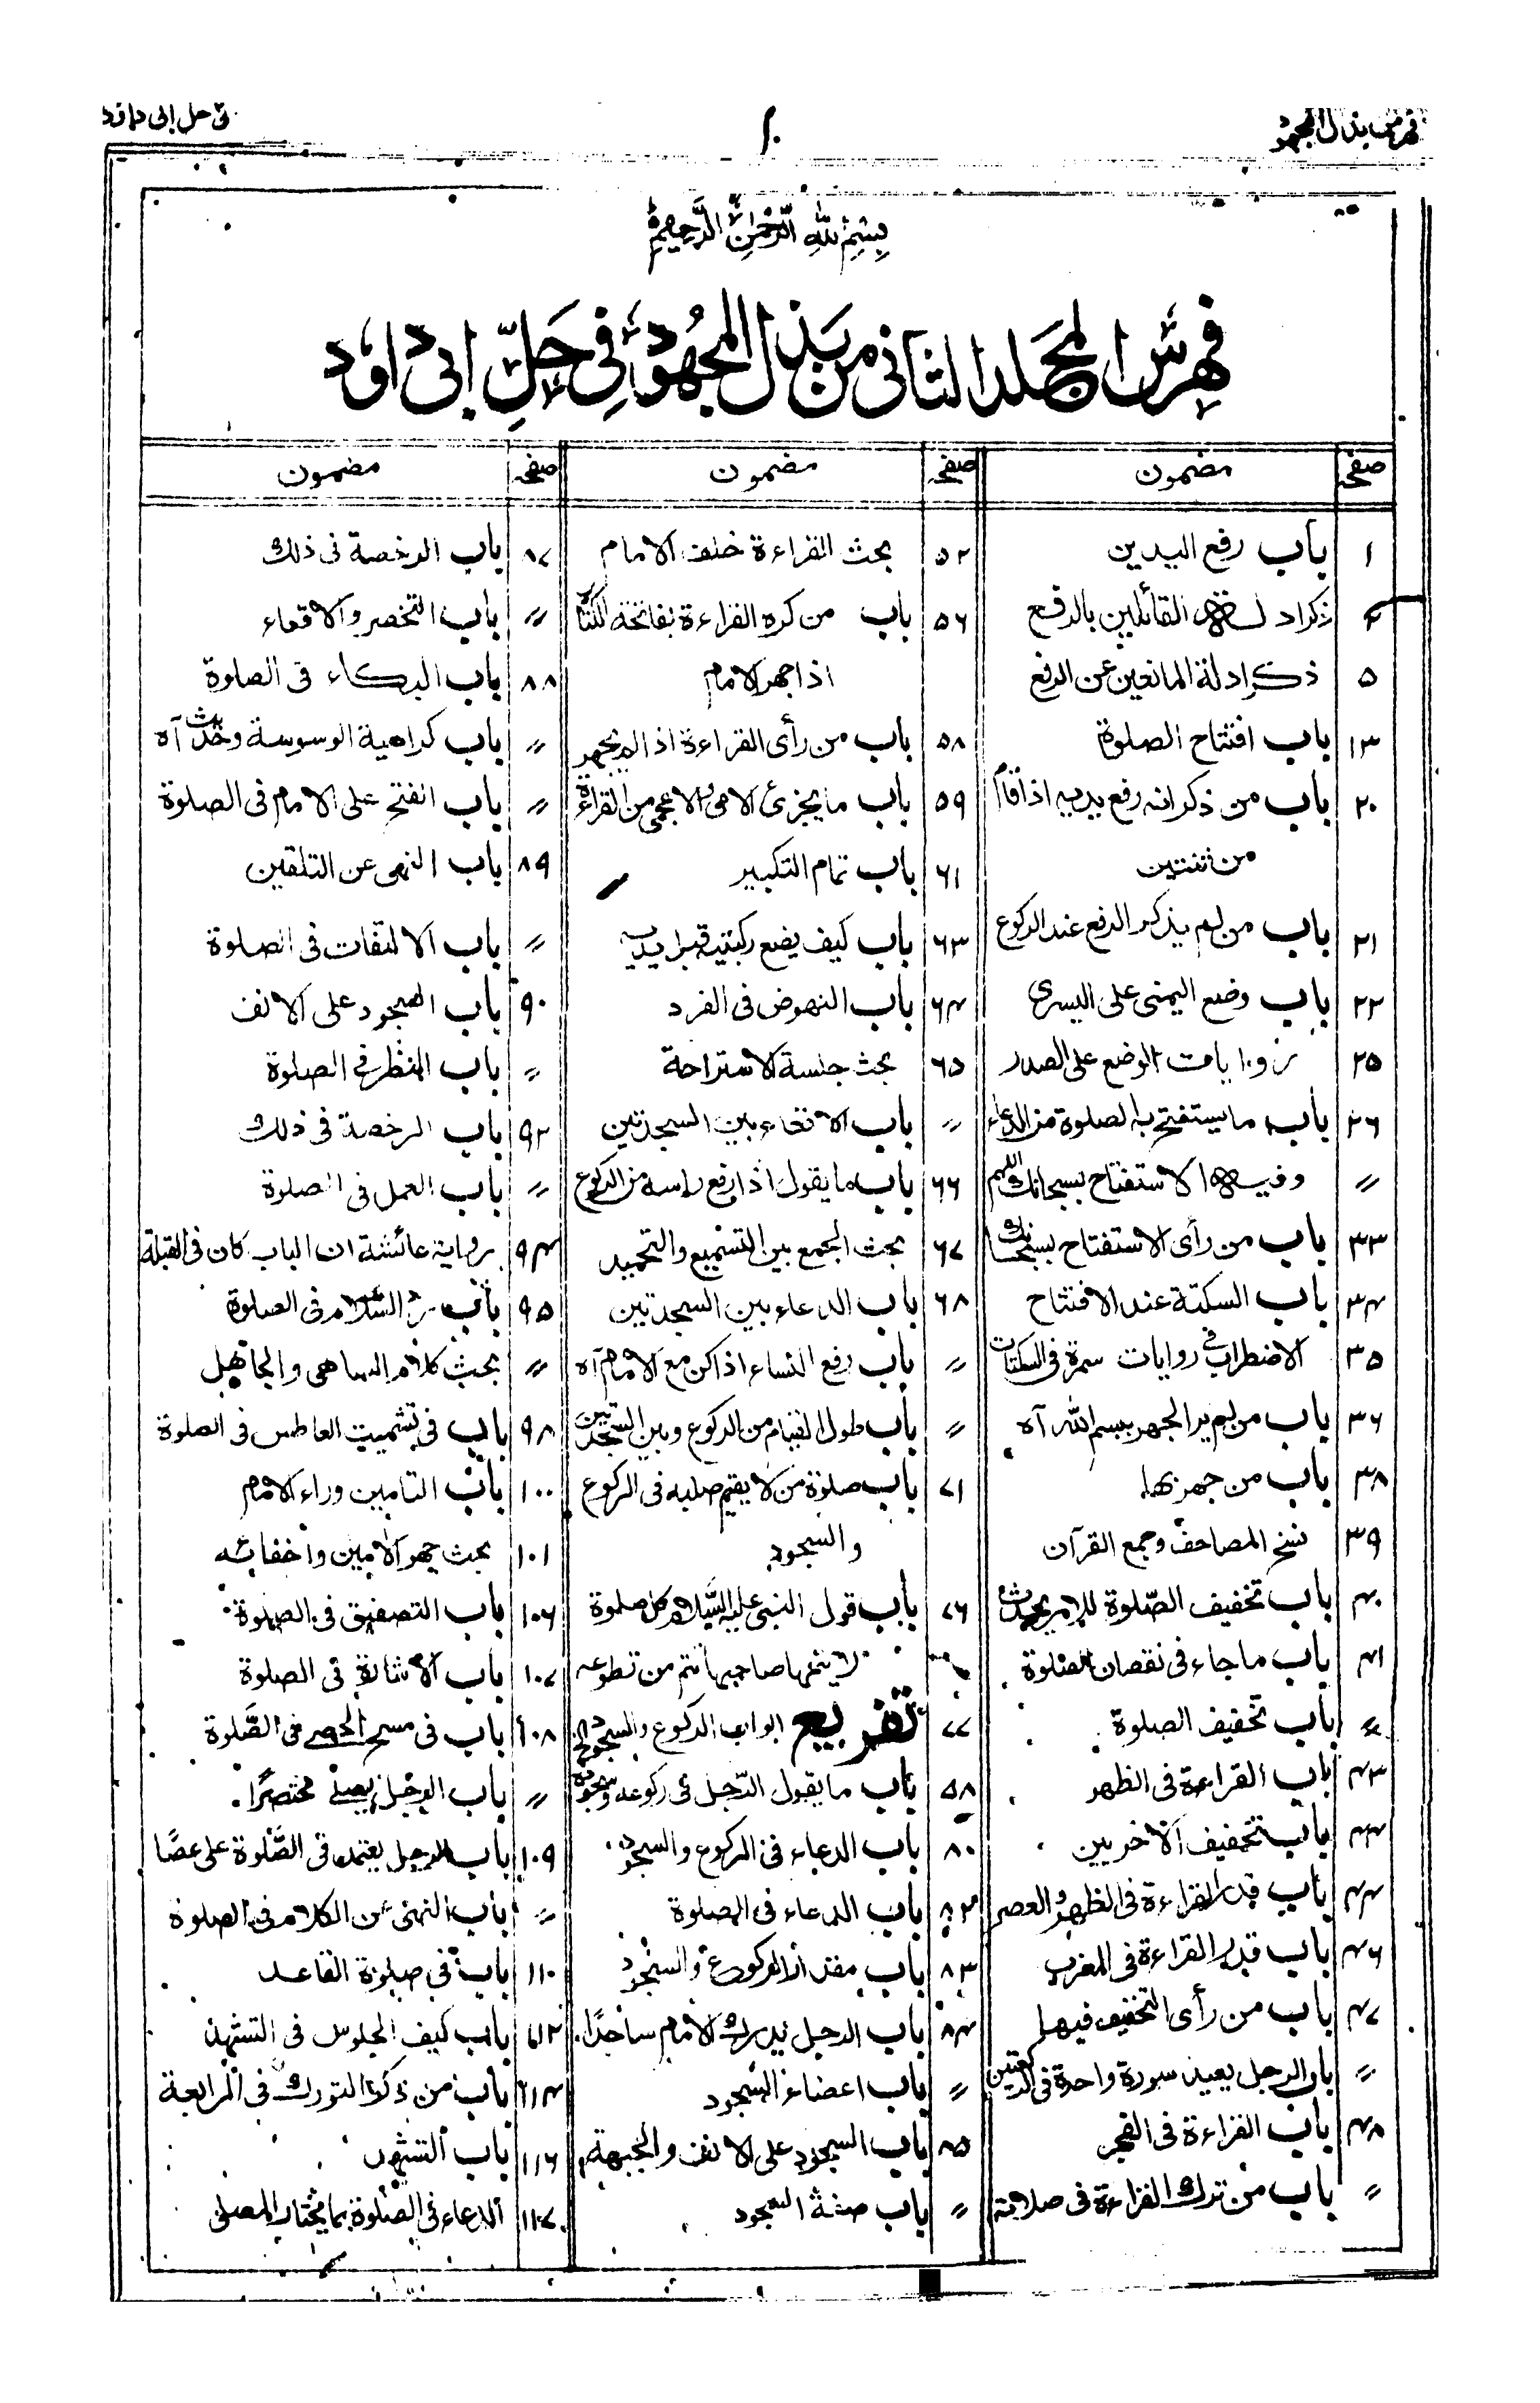 فهرس بذل المجهود
في حل ابی داؤد
بِسْمِ اللهِ الرَّحْمٰنِ الرَّحِيْمِ
فهرس المجلد الثانی من بذل المجهود فی حل ابی داؤد
صفحہ مضمون
۱ باب رفع اليدين
ذكر ادلة القائلين بالرفع
۵ ذكر ادلة المانعين عن الرفع
۱۳ باب افتتاح الصلوة
۲۰ باب من ذكر انه رفع يديه اذا قام
من ثنتين
۲۱ باب من لم يذكر الرفع عند الركوع
۲۲ باب وضع اليمنى على اليسرى
۲۵ روايات الوضع على الصدر
۲۶ باب ما يستفتح به الصلوة من الدعاء
〃 وفيه الاستفتاح بسبحانك اللهم
۳۳ باب من رأى الاستفتاح بسبحانك
۳۴ باب السكتة عند الافتتاح
۳۵ الاضطراب فی روايات سمرة فی السكتات
۳۶ باب من لم ير الجهر ببسم الله آه
۳۸ باب من جهر بها
۳۹ نسخ المصاحف وجمع القرآن
۴۰ باب تخفيف الصّلوة للامر يحدث
۴۱ باب ما جاء فی نقصان الصلوة
〃 باب تخفيف الصلوة
۴۳ باب القراءة فی الظهر
۴۴ باب تخفيف الاخريين
۴۴ باب قدر القراءة فی الظهر والعصر
۴۶ باب قدر القراءة فی المغرب
۴۷ باب من رأى التخفيف فيها
〃 باب الرجل يعيد سورة واحدة فی الركعتين
۴۸ باب القراءة فی الفجر
〃 باب من ترك القراءة فی صلاته
صفحہ مضمون
۵۲ بحث القراءة خلف الامام
۵۶ باب من كره القراءة بفاتحة الكتاب
اذا جهر الامام
۵۸ باب من رأى القراءة اذا لم يجهر
۵۹ باب ما يجزئ الامی والاعجمی من القراءة
۶۱ باب تمام التكبير
۶۳ باب كيف يضع ركبتيه قبل يديه
۶۴ باب النهوض فی الفرد
۶۵ بحث جلسة الاستراحة
〃 باب الاقعاء بين السجدتين
۶۶ باب ما يقول اذا رفع راسه من الركوع
۶۷ بحث الجمع بين التسميع والتحميد
۶۸ باب الدعاء بين السجدتين
〃 باب رفع النساء اذا كن مع الامام آه
〃 باب طول القيام من الركوع وبين السجدتين
۷۱ باب صلوة من لا يقيم صلبه فی الركوع
والسجود
۷۶ باب قول النبی عليه السّلام كل صلوة
لا يتمها صاحبها تتم من تطوعه
۷۷ تفريع ابواب الركوع والسجود الخ
باب ما يقول الرّجل فی ركوعه وسجوده
۸۰ باب الدعاء فی الركوع والسجود
۸۲ باب الدعاء فی الصلوة
۸۳ باب مقدار الركوع والسجود
۸۴ باب الرجل يدرك الامام ساجدًا
〃 باب اعضاء السجود
۸۵ باب السجود على الانف والجبهة
〃 باب صفة السجود
صفحہ مضمون
۸۷ باب الرخصة فی ذلك
〃 باب التخصر والاقعاء
۸۸ باب البكاء فی الصلوة
〃 باب كراهية الوسوسة وحديث آه
〃 باب الفتح على الامام فی الصلوة
۸۹ باب النهی عن التلقين
〃 باب الالتفات فی الصلوة
۹۰ باب السجود على الانف
〃 باب النظر فی الصلوة
۹۲ باب الرخصة فی ذلك
〃 باب العمل فی الصلوة
۹۴ رواية عائشة ان الباب كان فی القبلة
۹۵ باب رد السّلام فی الصلوة
〃 بحث كلام الساهی والجاهل
۹۸ باب فی تشميت العاطس فی الصلوة
۱۰۰ باب التامين وراء الامام
۱۰۱ بحث جهر الامين واخفائه
۱۰۶ باب التصفيق فی الصلوة
۱۰۷ باب الاشارة فی الصلوة
۱۰۸ باب فی مسح الحصى فی الصّلوة
〃 باب الرجل يصلی مختصرًا
۱۰۹ باب الرجل يعتمد فی الصّلوة على عصًا
〃 باب النهی عن الكلام فی الصلوة
۱۱۰ باب فی صلوة القاعد
۱۱۲ باب كيف الجلوس فی التشهد
۱۱۴ باب من ذكر التورك فی الرابعة
۱۱۶ باب التشهد
۱۱۷ الدعاء فی الصّلوة بما يختار المصلی